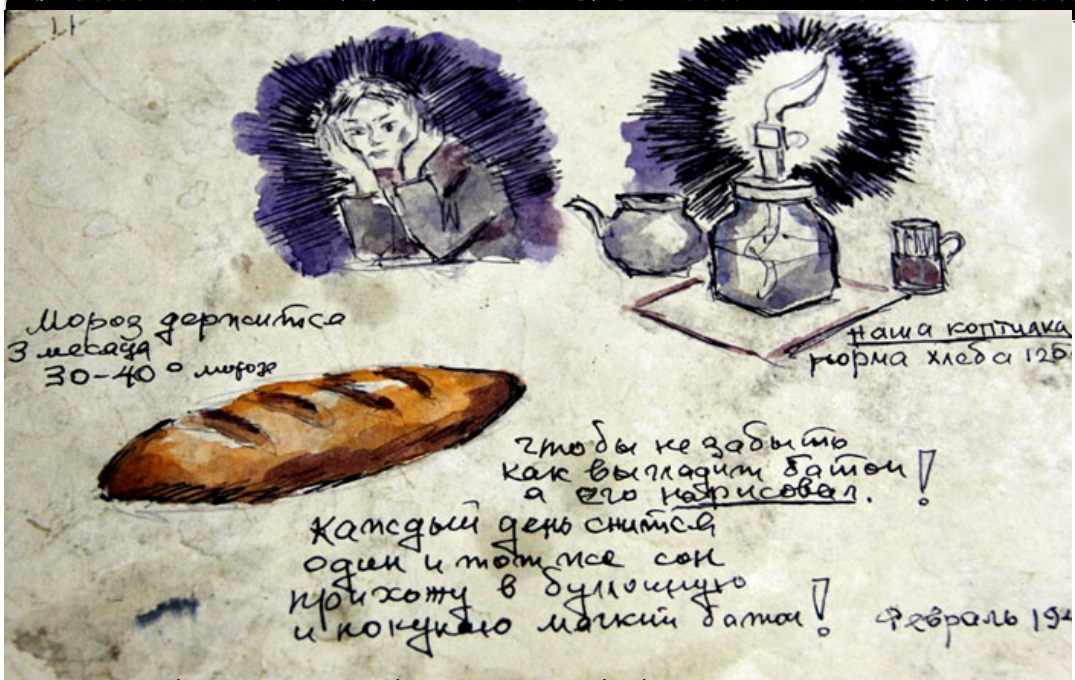 Мороз держится
3 месаца
30-40° мороз
наша коптилка
норма хлеба 125
чтобы не забыть
как выгладит батон!
я его нарисовал.
Каждый день снится
один и тот же сон
прихожу в буллочную
и покупаю мягкий батон!
Февраль 194